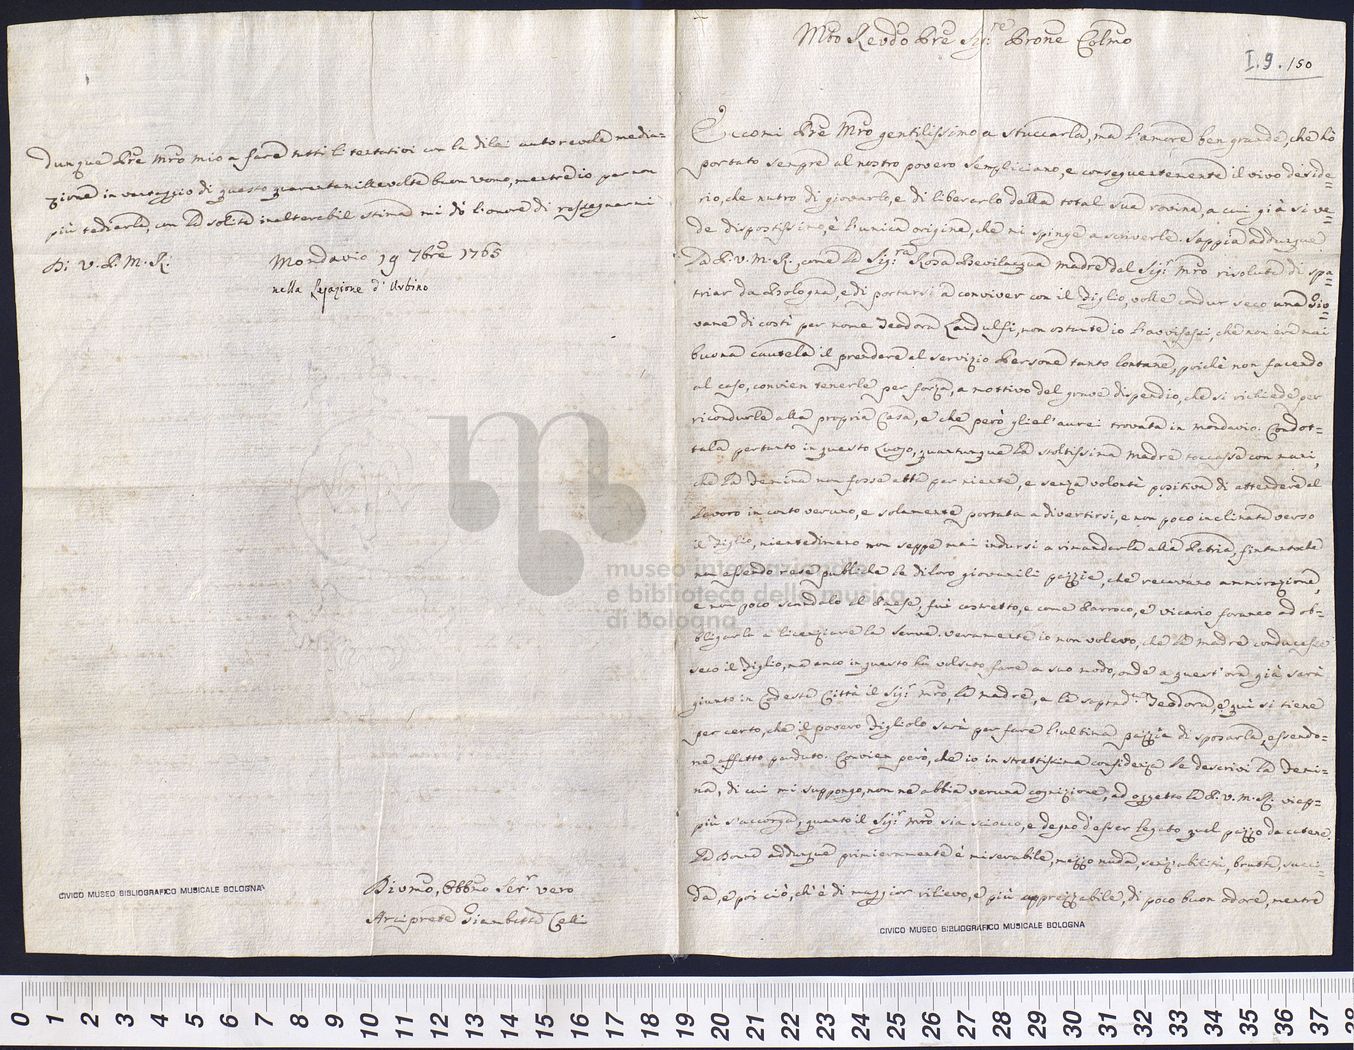 Mto Revdo Pre Sig:re Prone Colmo
I. 9. 150
Eccomi Pre Mro gentilissimo a stuccarla, ma l'amore ben grande, che hò
portato sempre al nostro povero Sempliciano, e conseguentemente il vivo deside=
rio, che nutro di giovarlo, e di liberarlo dalla total sua rovina, a cui già si ve=
de dispostissimo, è l'unica origine, che mi spinge a scriverle. Sappia addunque
La P. V. M. R., come la Sig:ra Rosa Bevilacqua madre del Sig:r Mro risoluta di spa=
triar da Bologna, e di portarsi a conviver con il Figlio, volle condur seco una Gio=
vane di costì per nome Teodora Landulfi, non ostante io l'avvisassi, che non era mai
buona cautela il prendere al servizio Persone tanto lontane, poichè non facendo
al caso, convien tenerle per forza, a mottivo del grave dispendio, che si richiede per
ricondurle alla propria Casa, e che però gliel'aurei trovata in Mondavio. Condot=
tala pertanto in questo Luogo, quantunque la stoltissima Madre toccasse con mani,
che la Femina non fosse atta per niente, e senza volontà positiva di attendere al
Lavoro in conto veruno, e solamente portata a divertirsi, e non poco inclinata verso
il Figlio, nientedimeno non seppe mai indursi a rimandarla alla Patria, fintantoche
non essendo rese publiche le di loro giovanili pazzie, che recavano ammirazione,
e non poco scandalo al Paese, fui costretto, e come Parroco, e vicario foraneo ad ob=
bligarla a licenziare la serva. veramente io non volevo, che la madre conducesse
seco il Figlio, ma anco in questo hà volsuto fare a suo modo, onde a quest'ora già sarà
giunto in Codesta Città il Sig:r Mro, la madre, e la soprad:ta Teodora, e quì si tiene
per certo, che il povero Figliolo sarà per fare l'ultima pazzia di sposarla, essendo=
ne affatto perduto. Convien però, che io in strettissima confidenza le descrivi la Femi=
na, di cui mi suppongo, non ne abbia veruna cognizione, ad oggetto la P. V. M. R. viep=
più s'accorga, quanto il Sig:r Mro sia sciocco, e degno d'esser legato qual pazzo da catene.
La Donna addunque primieramente è miserabile, mezzo nuda, senz'abilità, brutta, suci=
da, e poi ciò, ch'è di maggior rilievo, e più apprezzabile, di poco buon odore, mentre
CIVICO MUSEO BIBLIOGRAFICO MUSICALE BOLOGNA
dunque Pre Mro mio a fare tutti li tentativi con la di lei autorevole media=
zione in vantaggio di questo quarantamillevolte buon uomo, mentre io per non
più tediarla, con la solita inalterabil stima mi dò l'onore di rassegnarmi
Di V. P. M. R.
Mondavio 19 7bre 1765
nella Legazione d'Urbino
Divmo, Obbmo Ser:r vero
Arciprete Giambatta Celli
CIVICO MUSEO BIBLIOGRAFICO MUSICALE BOLOGNA
museo internazionale
e biblioteca della musica
di bologna
0 1 2 3 4 5 6 7 8 9 10 11 12 13 14 15 16 17 18 19 20 21 22 23 24 25 26 27 28 29 30 31 32 33 34 35 36 37 38